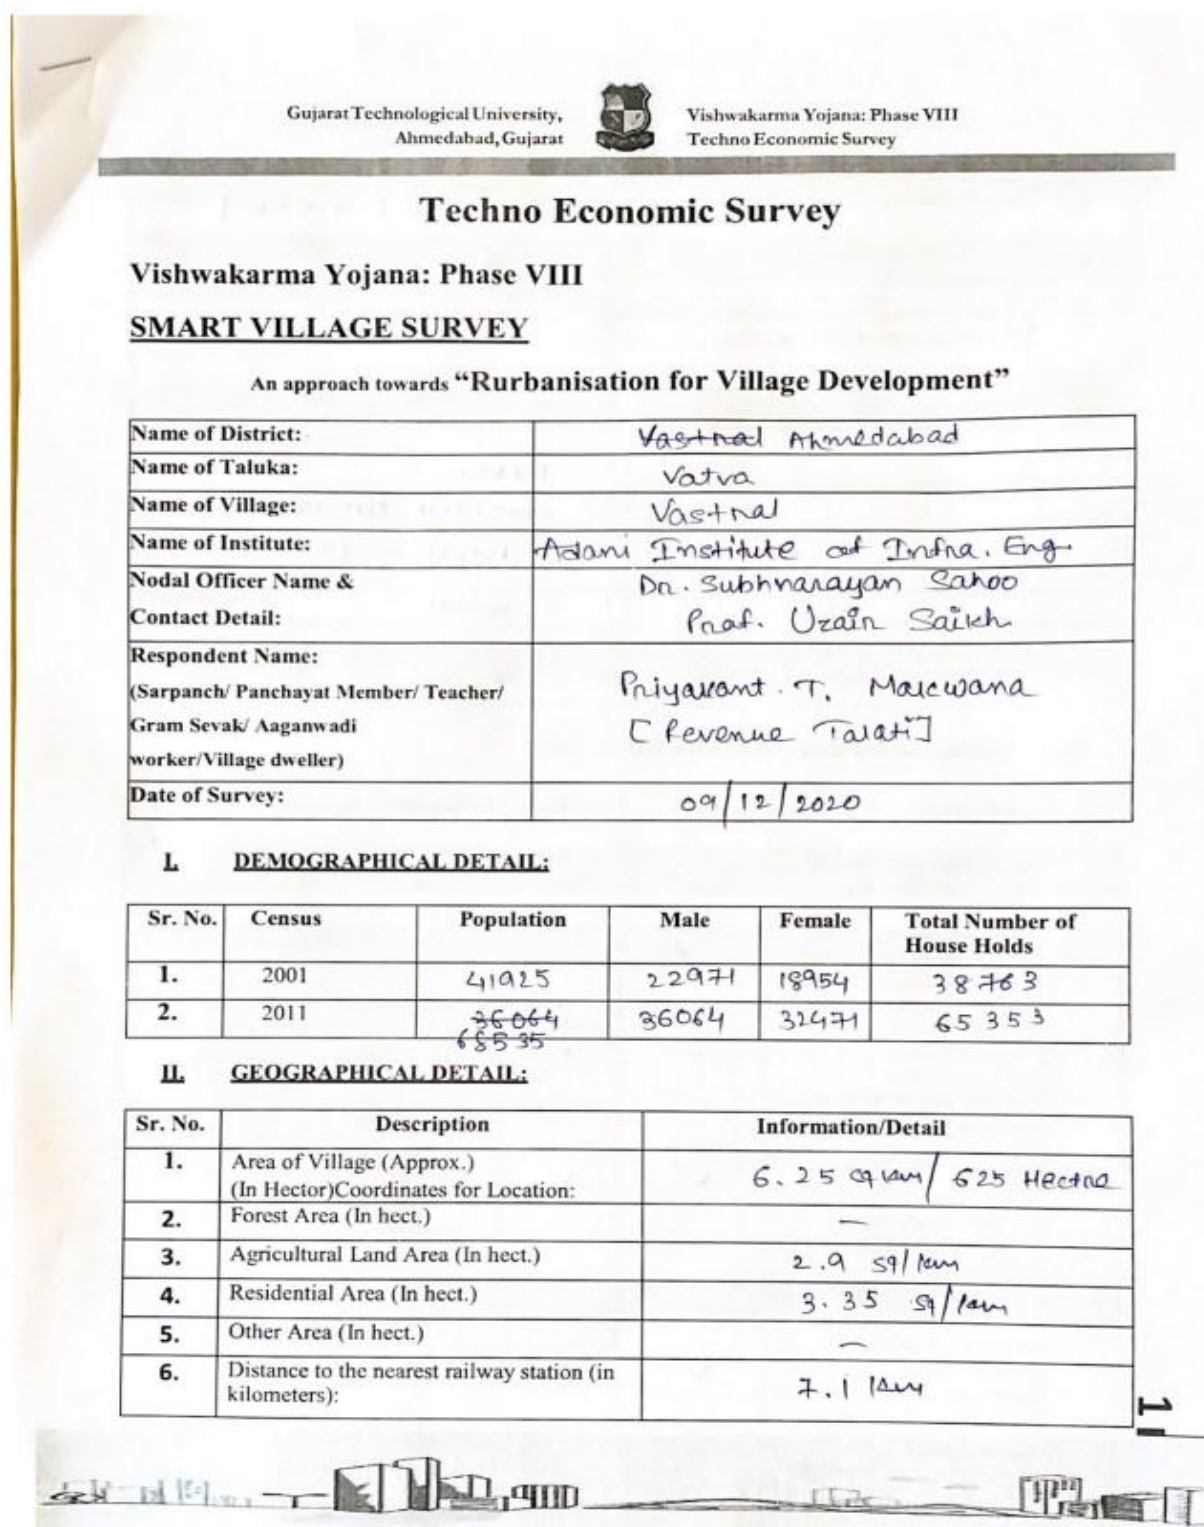 Gujarat Technological University,
Ahmedabad, Gujarat
Vishwakarma Yojana: Phase VIII
Techno Economic Survey
Techno Economic Survey
Vishwakarma Yojana: Phase VIII
SMART VILLAGE SURVEY
An approach towards “Rurbanisation for Village Development”
Name of District: Vastral Ahmedabad
Name of Taluka: Vatva
Name of Village: Vastral
Name of Institute: Adani Institute of Infra. Eng.
Nodal Officer Name & Dr. Subhnarayan Sahoo
Contact Detail: Prof. Uzain Saikh
Respondent Name:
(Sarpanch/ Panchayat Member/ Teacher/ Priyakant. T. Makwana
Gram Sevak/ Aaganwadi [Revenue Talati]
worker/Village dweller)
Date of Survey: 09/12/2020
I. DEMOGRAPHICAL DETAIL:
Sr. No. Census Population Male Female Total Number of
House Holds
1. 2001 41925 22971 18954 38763
2. 2011 36064 36064 32471 65353
68535
II. GEOGRAPHICAL DETAIL:
Sr. No. Description Information/Detail
1. Area of Village (Approx.)
(In Hector)Coordinates for Location: 6.25 sq km/ 625 Hectre
2. Forest Area (In hect.) –
3. Agricultural Land Area (In hect.) 2.9 sq/km
4. Residential Area (In hect.) 3.35 sq/km
5. Other Area (In hect.) –
6. Distance to the nearest railway station (in
kilometers): 7.1 km
1